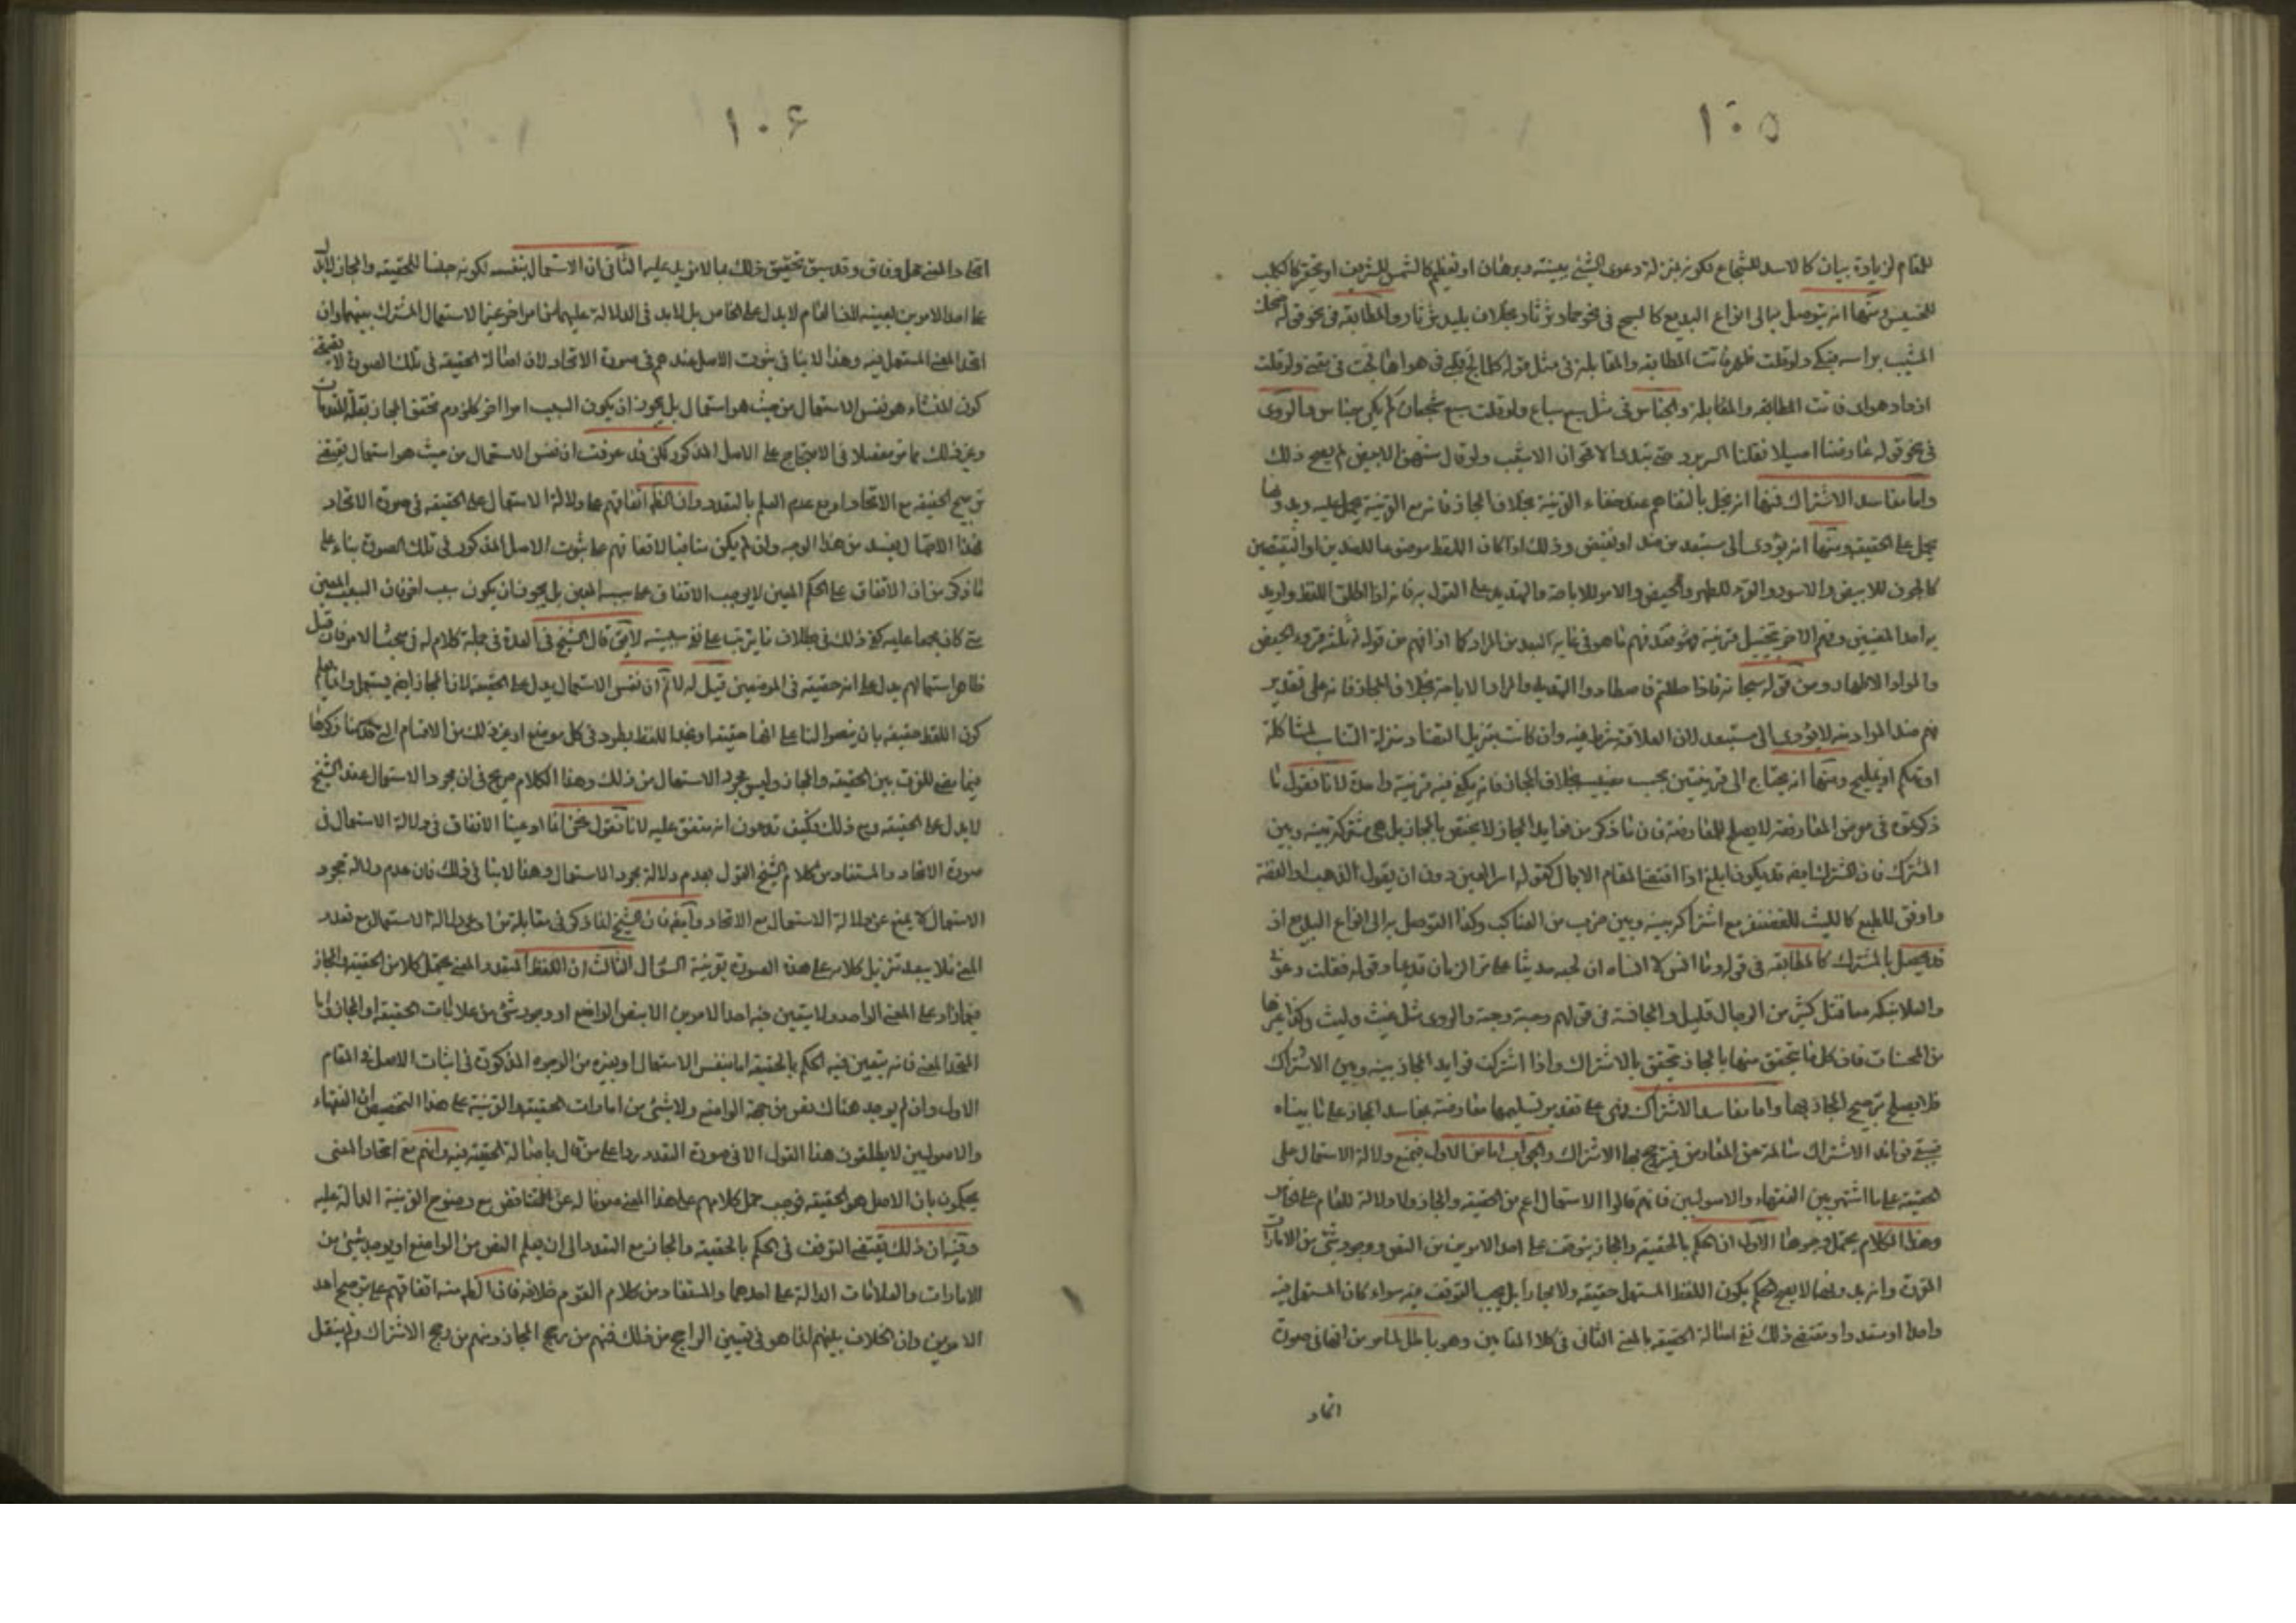 ١٠٥
للمقام لزيادة بيان كالاسد للشجاع لكونه بمنزلة دعوى الشيء ببينة وبرهان او تعظيم كالشمس للشريف او تحقير كالكلب
للخسيس ومنها انه يتوصل بها الى انواع البديع كالسجع في نحو حمار ثرثار بخلاف بليد ثرثار والمطابقة في نحو قوله ضحك
المشيب براسه فبكى ولو قلت ظهر فاتت المطابقة والمقابلة في مثل قوله كلما لج قلبي في هواها لجت في مقتي ولو قلت
ازداد هواى فاتت المطابقة والمقابلة والجناس في مثل سبع سباع ولو قلت سبع شجعان لم يكن جناس والروى
في نحو قوله عارضنا اصيلا فقلنا الربرب حتى تبدى الاقحوان الاشنب ولو قال سنهن الابيض لم يصح ذلك
واما مفاسد الاشتراك فمنها انه يخل بالتفاهم عند خفاء القرينة بخلاف المجاز فانه مع القرينة يحمل عليه وبدونها
يحمل على الحقيقة ومنها انه يؤدى الى مستبعد من ضد او نقيض وذلك اذا كان اللفظ موضوعا للضدين او النقيضين
كالجون للابيض والاسود والقرء للطهر والحيض والامر للاباحة والتهديد على القول به فانه اذا اطلق اللفظ واريد
به احد المعنيين وفهم الاخر بتخييل قرينة فهو فقد فهم ما هو في غاية البعد من المراد كما اذا فهم من قوله ثلثة قروء الحيض
والمراد الاطهار ومن قوله سبحانه فاذا حللتم فاصطادوا التهديد والمراد الاباحة بخلاف المجاز فانه على تقدير
فهم ضد المراد منه لا يؤدى الى مستبعد لان العلاقة شرط فيه وان كانت بتنزيل التضاد منزلة التناسب لمشاكلة
او تهكم او تمليح ومنها انه يحتاج الى قرينتين بحسب معنييه بخلاف المجاز فانه يكفي فيه قرينة واحدة لانا نقول ما
ذكرتموه في معرض المعارضة لا يصلح للمعارضة فان ما ذكر من فوايد المجاز لا يختص بالمجاز بل هي مشتركة بينه وبين
المشترك فان المشترك ايضا قد يكون ابلغ اذا اقتضى المقام الاجمال كقوله اسر العين دون ان يقول الذهب او الفضة
واوفق للطبع كالليث للغضنفر مع اشتراكه بينه وبين ضرب من العناكب وكذا التوصل به الى انواع البديع اذ
قد يحصل بالمشترك كالمطابقة في قوله
والملائكة قتل كثير من الرجال قليل والمجانسة في قولهم رحبة رحبة والروى مثل غيث وليث وكذا غيرها
من المحسنات فان كل ما يتحقق منها بالمجاز يتحقق بالاشتراك واذا اشتركت فوايد المجاز بينه وبين الاشتراك
فلا يصلح ترجيح المجاز بها واما مفاسد الاشتراك فهي على تقدير تسليمها معارضة بمفاسد المجاز على ما بيناه
فيبقى فوائد الاشتراك سالمة عن المعارض فترجح بها الاشتراك والجواب اما عن الاول فبمنع دلالة الاستعمال على
الحقيقة على ما اشتهر بين الفقهاء والاصوليين فانهم قالوا الاستعمال اعم من الحقيقة والمجاز ولا دلالة للعام على الخاص
وهذا الكلام يحتمل وجوها الاول ان الحكم بالحقيقة والمجاز يتوقف على احد الامرين من النص ووجود شيء من الامارات
المقررة وانه بدونهما لا يصح الحكم بكون اللفظ المستعمل حقيقة ولا مجازا بل يجب التوقف فيه سواء كان المستعمل فيه
واحدا او متعددا ومقتضى ذلك نفى اصالة الحقيقة بالمعنى الثاني في كلا المقامين وهو باطل لما مر من انها في صورة
اتحاد
١٠٦
اتحاد المعنى محل وفاق وقد سبق تحقيق ذلك بما لا مزيد عليه الثاني ان الاستعمال بنفسه لكونه جنسا للحقيقة والمجاز لا يدل
على احد الامرين بعينه لان العام لا يدل على الخاص بل لا بد في الدلالة عليهما من امر اخر غير الاستعمال المشترك بينهما وان
اتحد المعنى المستعمل فيه وهذا لا ينافي ثبوت الاصل عندهم في صورة الاتحاد لان اصالة الحقيقة في تلك الصورة لا يقتضى
كون المنشاء هو نفس الاستعمال من حيث هو استعمال بل يجوز ان يكون السبب امرا اخر كلزوم تحقق المجاز بقلة المقدمات
وغير ذلك مما مر مفصلا في الاحتجاج على الاصل المذكور لكن قد عرفت ان نفس الاستعمال من حيث هو استعمال يقتضى
ترجيح الحقيقة مع الاتحاد او مع عدم العلم بالتعدد وان الظ اتفاقهم على دلالة الاستعمال على الحقيقة في صورة الاتحاد
فهذا الاحتمال بعيد من هذا الوجه وان لم يكن منافيا لاتفاقهم على ثبوت الاصل المذكور في تلك الصورة بناء على
ما ذكر من ان الاتفاق على الحكم المعين لا يوجب الاتفاق على سببه المعين بل يجوز ان يكون سبب اخر فان السبب المعين
متى كان مجمعا عليه كفى ذلك في بطلان ما يترتب على نفى سببيته لا يق قال الشيخ في العدة في جملة كلام له في مبحث الامر فان قيل
ظاهر استعمالهم يدل على انه حقيقة في الموضعين قيل له لا نم ان نفس الاستعمال يدل على الحقيقة لان المجاز ايضا يستعمل وانما يعلم
كون اللفظ حقيقة بان ينصوا لنا على انها حقيقة او نجد اللفظ يطرد في كل موضع او غير ذلك من الاقسام التي قدمنا ذكرها
فيما مضى للفرق بين الحقيقة والمجاز وليس مجرد الاستعمال من ذلك وهذا الكلام صريح في ان مجرد الاستعمال عند الشيخ
لا يدل على الحقيقة ومع ذلك فكيف تدعون انه متفق عليه لانا نقول نحن انما ادعينا الاتفاق في دلالة الاستعمال في
صورة الاتحاد والمستفاد من كلام الشيخ القول بعدم دلالة مجرد الاستعمال وهذا لا ينافي ذلك فان عدم دلالة مجرد
الاستعمال لا يمنع عن دلالة الاستعمال مع الاتحاد وايضا فان الشيخ انما ذكر في مقابلة من ادعى دلالة الاستعمال مع تعدد
المعنى فلا يبعد تنزيل كلامه على هذه الصورة بقرينة السؤال الثالث ان اللفظ المتعدد المعنى يحتمل كلا من الحقيقة والمجاز
فيما زاد على المعنى الواحد ولا يتعين فيه احد الامرين الا بنص الواضع او وجود شيء من علامات الحقيقة او المجاز واما
المتحد المعنى فانه يتعين فيه الحكم بالحقيقة اما بنفس الاستعمال او بغيره من الوجوه المذكورة في اثبات الاصل في المقام
الاول وان لم يوجد هناك نص من جهة الواضع ولا شيء من امارات الحقيقة والقرينة على هذا التخصيص ان الفقهاء
والاصوليين لا يطلقون هذا القول الا في صورة التعدد ردا على من قال باصالة الحقيقة فيه وانهم مع اتحاد المعنى
يحكمون بان الاصل هو الحقيقة فوجب حمل كلامهم على هذا المعنى صونا له عن التناقض مع وضوح القرينة الدالة عليه
وفيه ان ذلك يقتضى التوقف في الحكم بالحقيقة والمجاز مع التعدد الى ان يعلم النص من الواضع او يوجد شيء من
الامارات والعلامات الدالة على احدهما والمستفاد من كلام القوم خلافه فان الظ منه اتفاقهم على ترجيح احد
الامرين وان الخلاف بينهم انما هو في تعيين الراجح من ذلك فمنهم من رجح المجاز ومنهم من رجح الاشتراك ولم ينقل